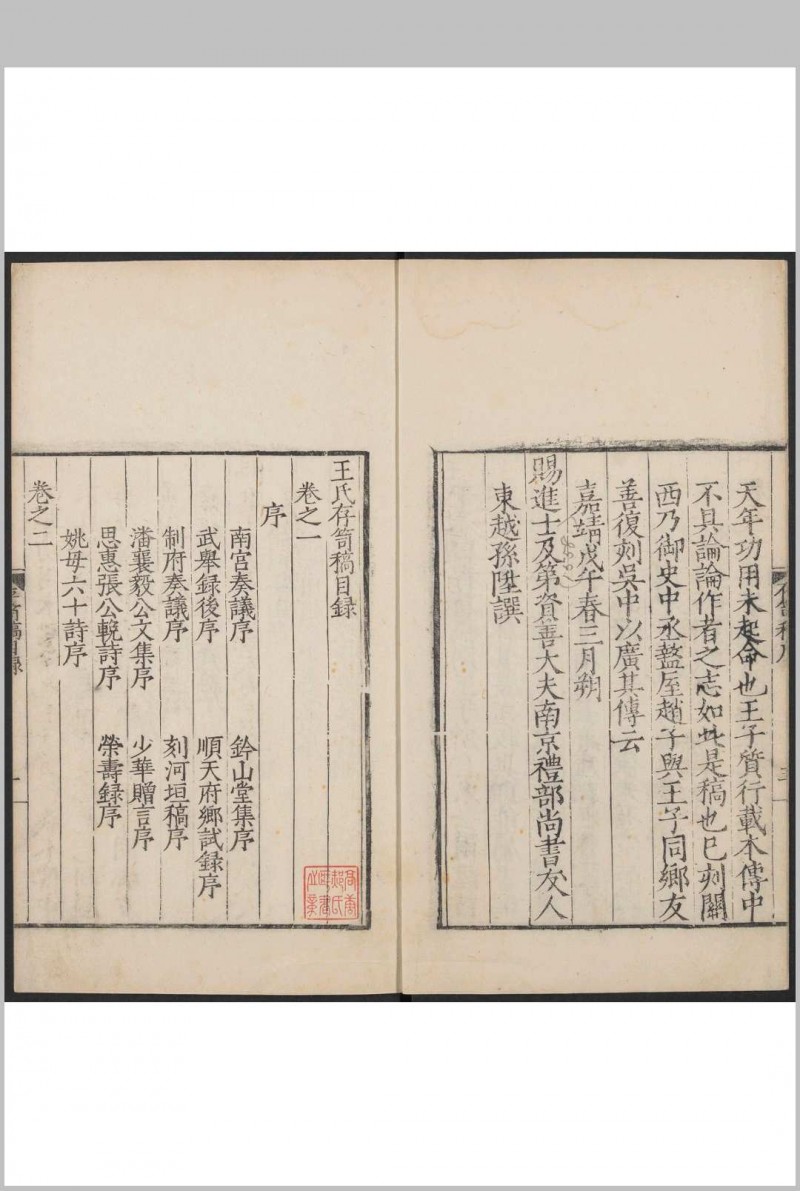 天年功用未起命也王子質行載本傳中
不具論論作者之志如此是稿也已刻關
西乃御史中丞盩厔趙子與王子同鄉友
善復刻吳中以廣其傳云
嘉靖戊午春三月朔
賜進士及第資善大夫南京禮部尚書友人
東越孫陞譔
王氏存笥稿目録
卷之一
序
南宮奏議序 鈐山堂集序
武舉録後序 順天府鄉試録序
制府奏議序 刻河垣稿序
潘襄毅公文集序 少華贈言序
思惠張公輓詩序 榮壽録序
姚母六十詩序
卷之二